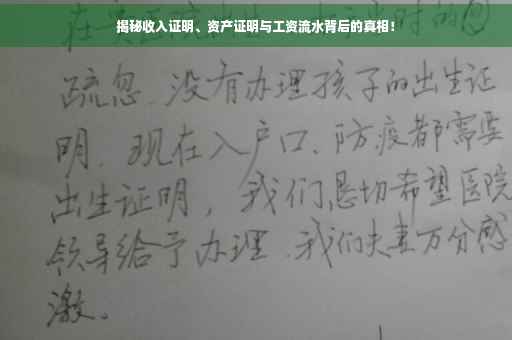 揭秘收入证明、资产证明与工资流水背后的真相！
在
时的
疏忽.没有办理孩子的出生证
明.现在入户口、防疫都需要
出生证明，我们恳切希望医院
领导给予办理.我们夫妻万分感
激。